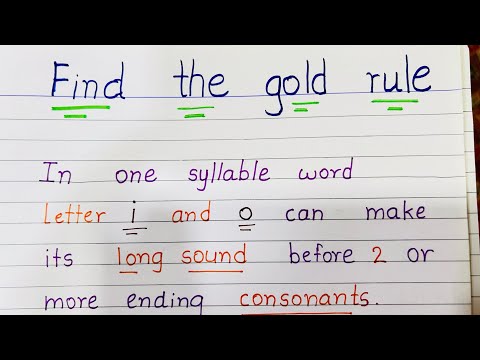 Find the gold rule
In one syllable word
letter i and o can make
its long sound before 2 or
more ending consonants.